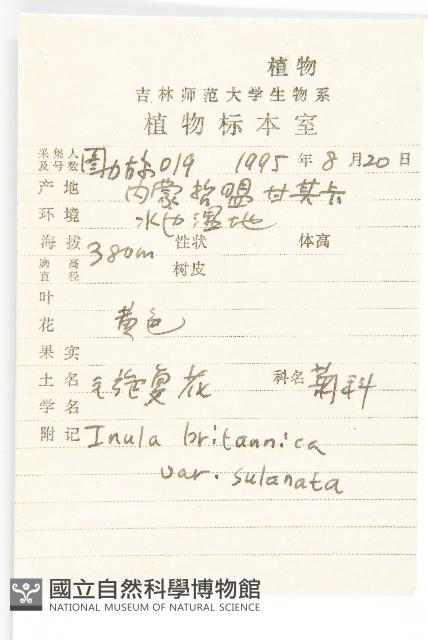 植物
吉林师范大学生物系
植物标本室
采集人及号数 图力古尔 019 1995 年 8 月 20 日
产地 内蒙哲盟甘其卡
环境 水边湿地
海拔 380m 性状 体高
胸高直径 树皮
叶
花 黄色
果实
土名 旋复花 科名 菊科
学名
附记 Inula britannica
var. sulanata
國立自然科學博物館
NATIONAL MUSEUM OF NATURAL SCIENCE